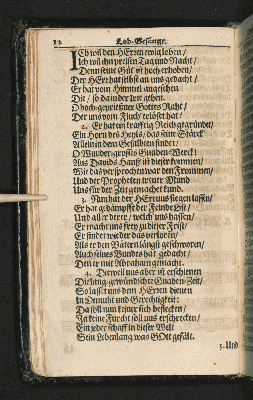 12 Lob-Gesänge.
ICh wil den HErren ewig loben /
Ich wil ihn preisen Tag und Nacht /
Denn seine Güt ist hoch erhoben /
Der HErr hat selbst an uns gedacht /
Er hat vom Himmel angesehen
Die / so da in der Irre gehen.
O hochgepriesner Gottes Macht /
Der uns vom Fluch erlöset hat!
2. Er hat ein kräfftig Reich gegründet /
Ein Horn des Heyls / das seine Stärck
Allein in dem Gesalbten findet /
O Wunder-grosses Gnaden-Werck!
Aus Davids Hauß ist dieser kommen /
Wie das versprochen war den Frommen /
Und der Propheten treuer Mund
Uns für der Zeit gemachet kund.
3. Nun hat der HErr uns siegen lassen /
Er hat gedämpfft der Feinde List /
Und all er derer / welch' uns hassen /
Er macht uns frey zu dieser Frist /
Er findet wieder das verlorne /
Als er den Vätern längst geschworen /
Auch seines Bundes hat gedacht /
Den er mit Abraham gemacht.
4. Dieweil uns aber ist erschienen
Die lang-gewündschte Gnaden-Zeit /
So lasset uns dem HErren dienen
In Demuht und Gerechtigkeit:
Da soll nun keiner sich beflecken /
Ja keine Furcht soll uns erschrecken /
Ein jeder schaff in dieser Welt
Sein Lebenlang was GOtt gefält.
5. Und